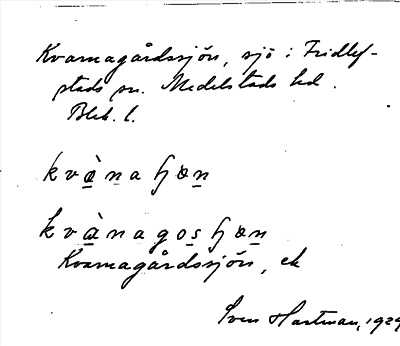 Kvarnagårdssjön, sjö i Fridlef-
stads sn. Medelstads hd.
Blek. l.
kvànaʃøn
kvànagosʃøn
Kvarnagårdssjön, ek
Sven Hartman, 1929